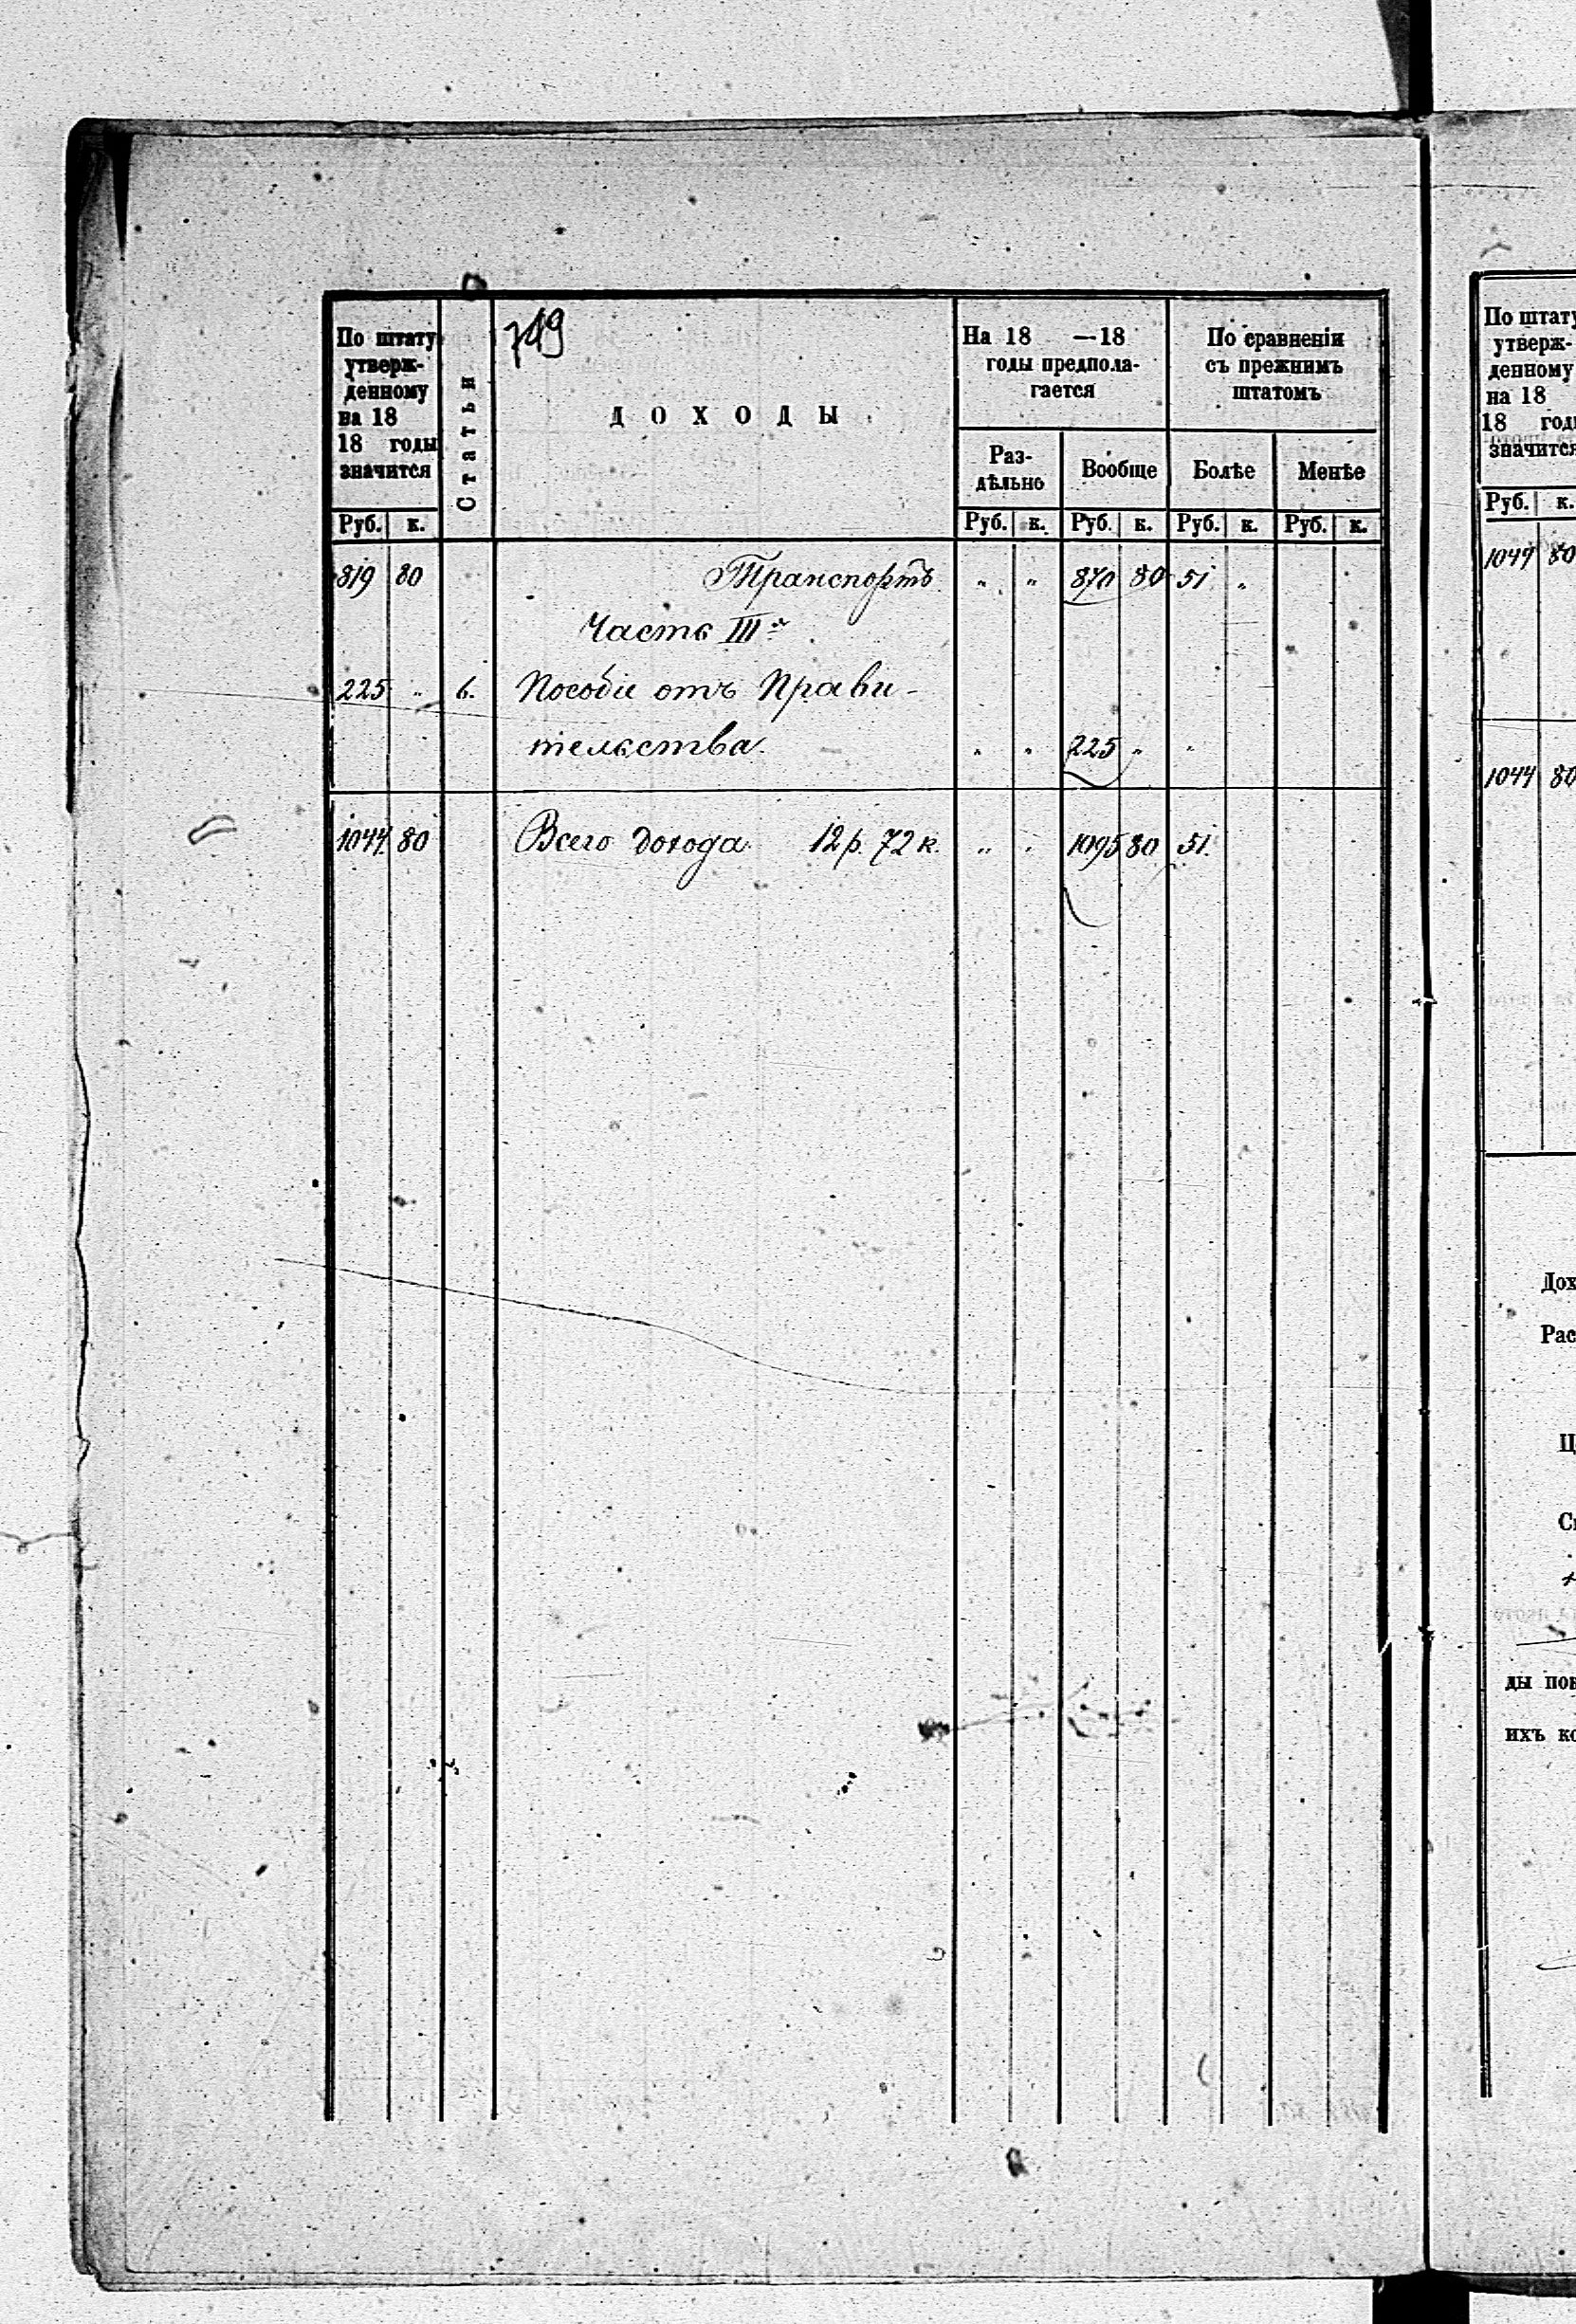 749
По штату
утверж-
денному
на 18
18 годы
значится
Руб. к.
Статьи
ДОХОДЫ
На 18 —18
годы предпола-
гается
Раз-
дѣльно
Руб. к.
Вообще
Руб. к.
По сравненіи
съ прежнимъ
штатомъ
Болѣе
Руб. к.
Менѣе
Руб. к.
819 80 Транспортъ „ „ 870 80 51 „
Часть III я
225 „ 6. Пособіе отъ Прави-
тельства. „ „ 225 „ „
1044 80 Всего дохода 12 р. 72 к. „ „ 1095 80 51.
По штату
утверж-
денному
на 18
18 годы
значится
Руб. к.
1044 80
1044 80
Дох
Рас
Ц
ды пов
ихъ ко